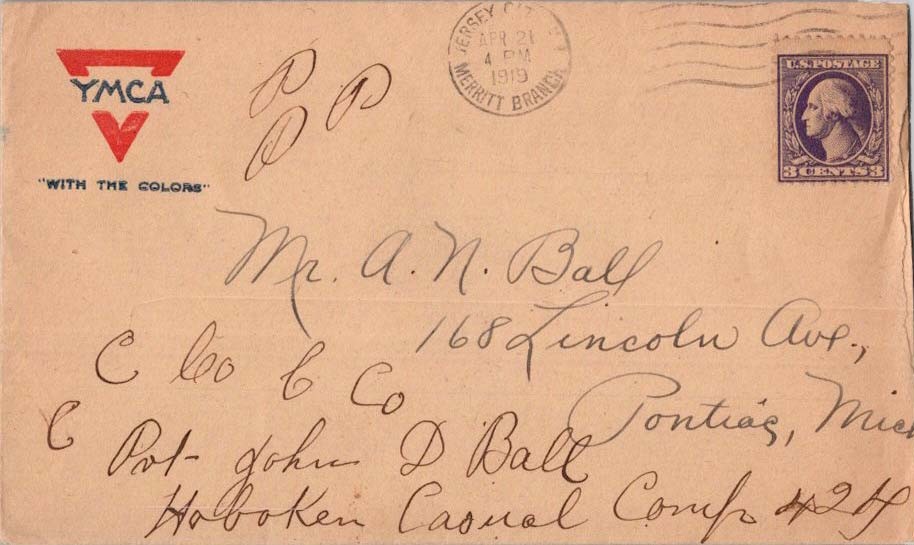 YMCA
"WITH THE COLORS"
P P
P
JERSEY CITY
APR 21
4 PM
1919
MERRITT BRANCH
U.S. POSTAGE
3 CENTS 3
Mr. A. N. Ball
168 Lincoln Ave.,
Pontiac, Mich
C Co C Co
C
Pvt John D Ball
Hoboken Casual Comp 424